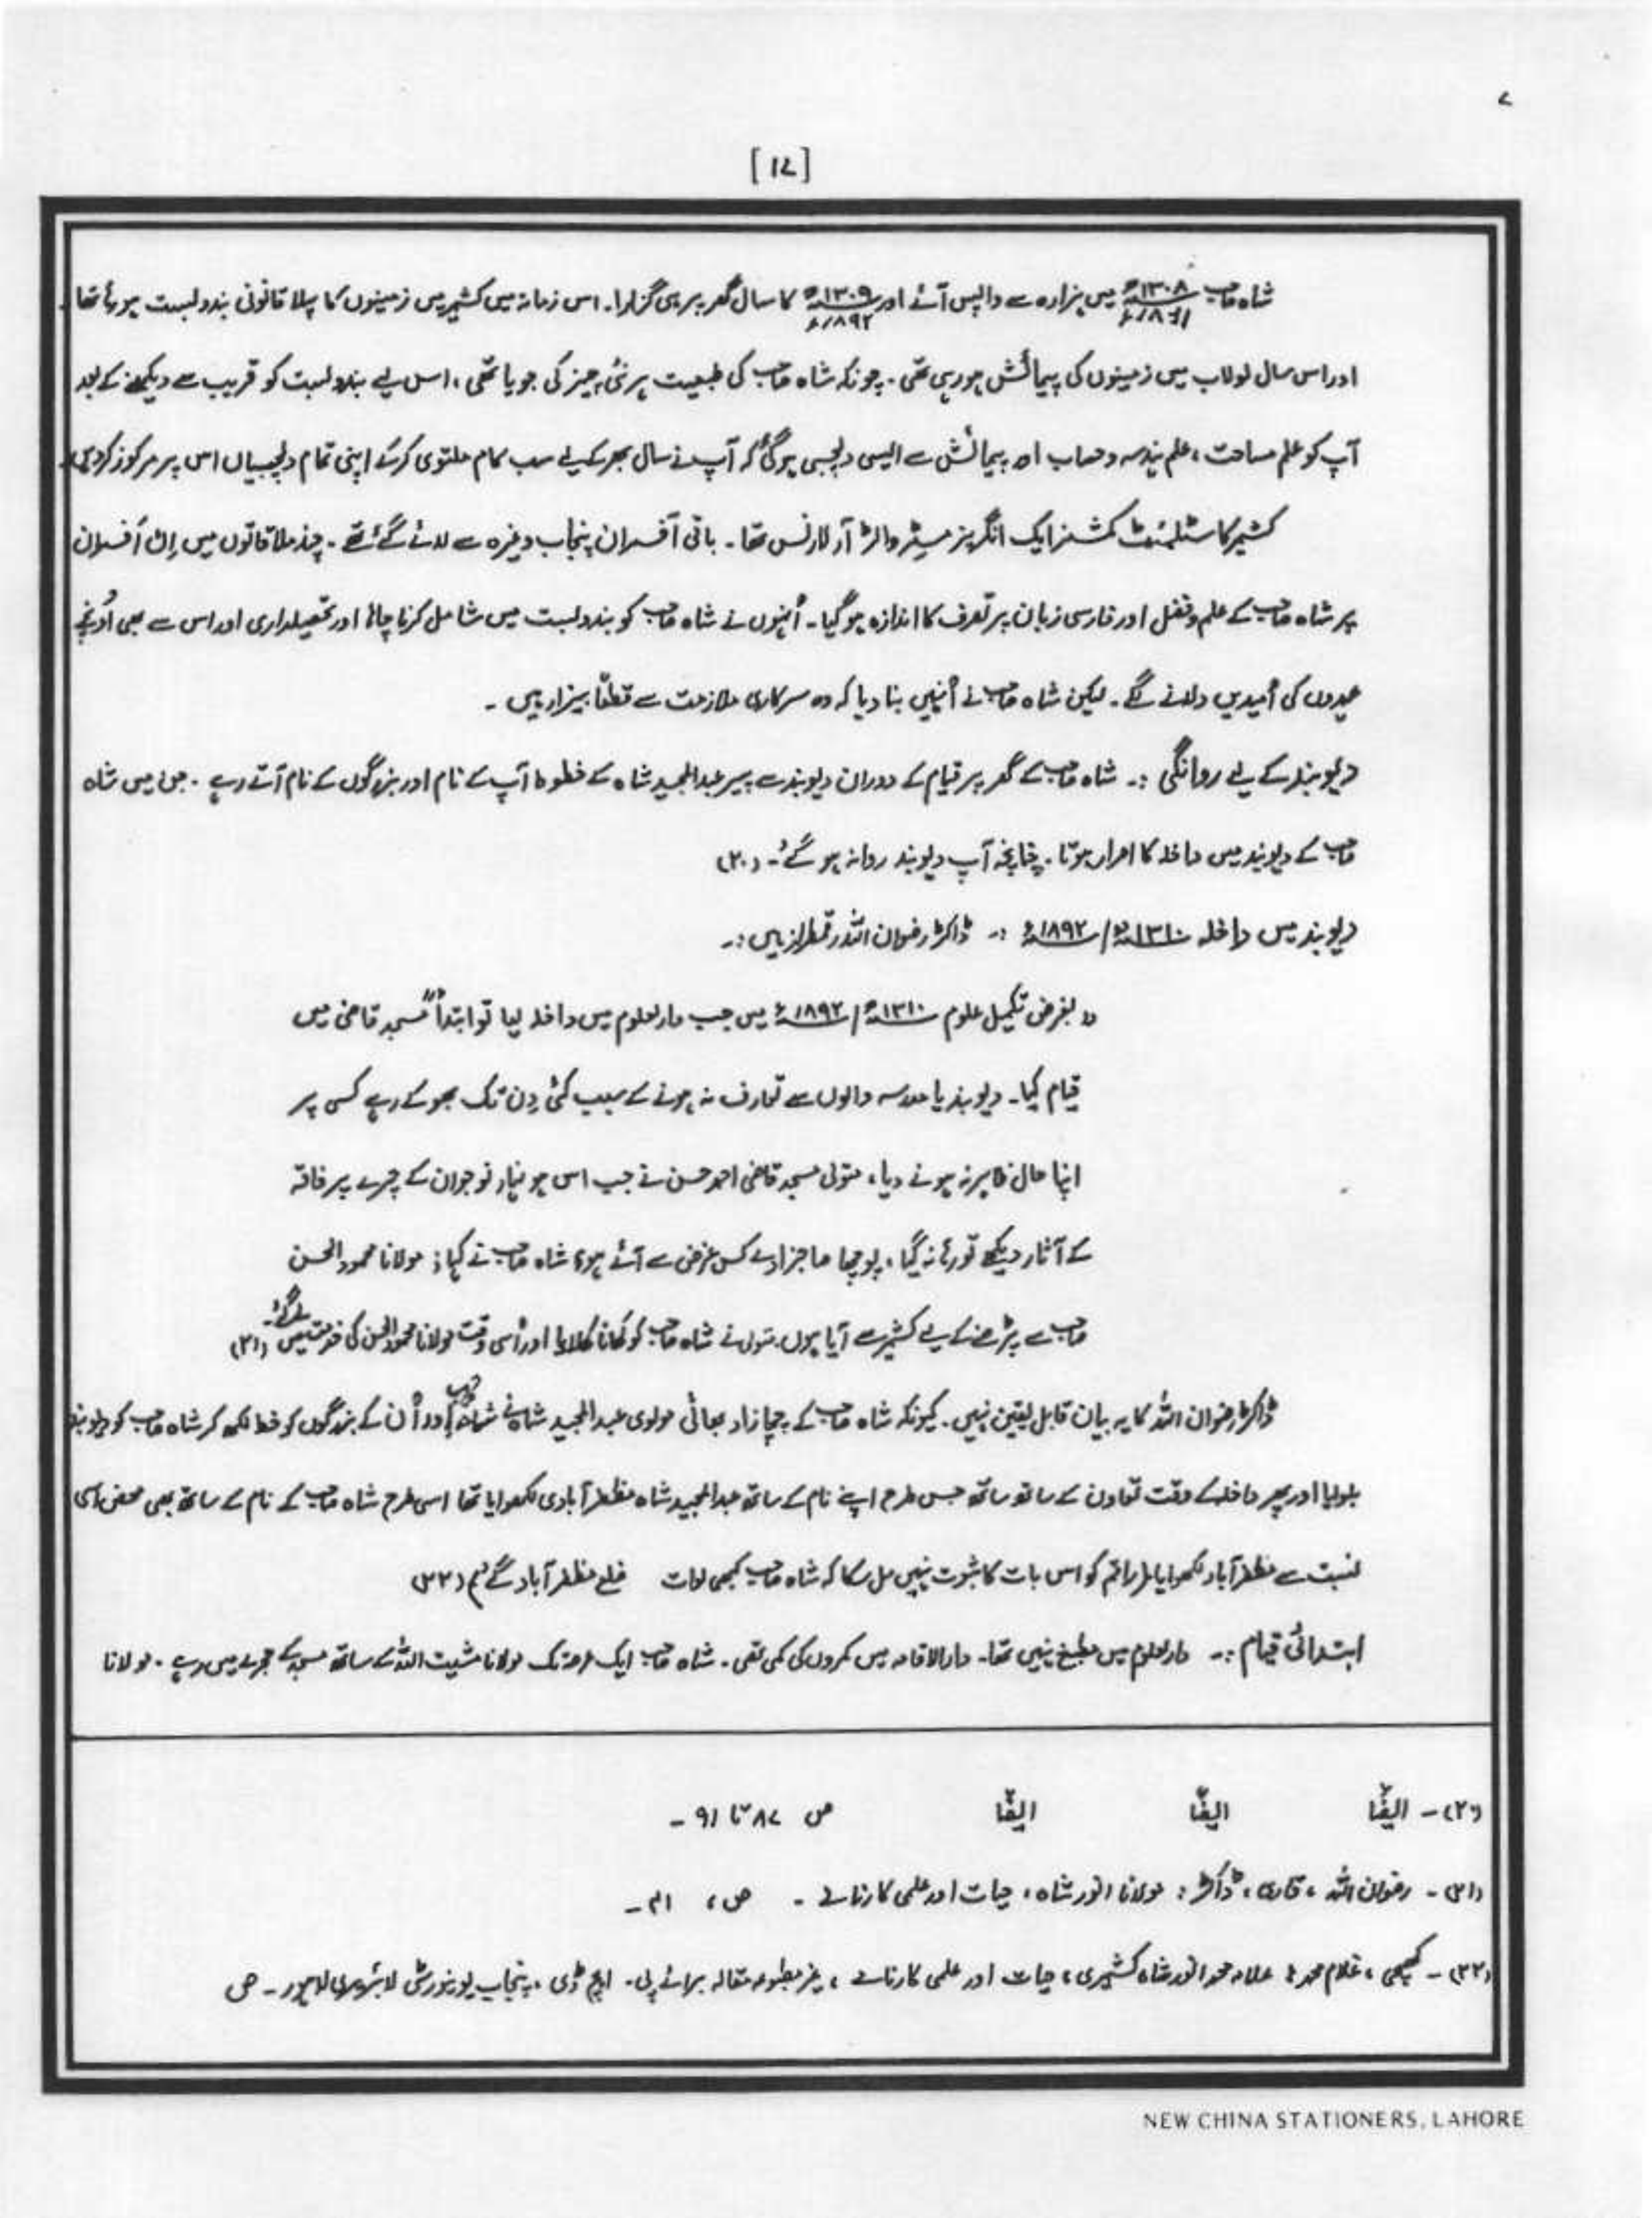 ۷
[۱۷]
شاہ صاحب ۱۳۰۸ھ ۱۸۹۱ء میں ہزارہ سے واپس آئے اور ۱۳۰۹ھ ۱۸۹۲ء کا سال گھر پر ہی گزارا۔ اس زمانہ میں کشمیر میں زمینوں کا پہلا قانونی بندوبست ہو رہا تھا۔
اور اس سال لولاب میں زمینوں کی پیمائش ہو رہی تھی۔ چونکہ شاہ صاحب کی طبیعت ہر نئی چیز کی جویا تھی، اس لیے بندوبست کو قریب سے دیکھنے کے بعد
آپ کو علم مساحت، علم ہندسہ و حساب اور پیمائش سے ایسی دلچسپی ہو گئی کہ آپ نے سال بھر کے لیے سب کام ملتوی کر کے اپنی تمام دلچسپیاں اس پر مرکوز کر دیں۔
کشمیر کا سٹلمنٹ کمشنر ایک انگریز مسٹر والٹر آر لارنس تھا۔ باقی آفسران پنجاب وغیرہ سے لائے گئے تھے۔ چند ملاقاتوں میں اِن آفسران
پر شاہ صاحب کے علم و فضل اور فارسی زبان پر تصرف کا اندازہ ہو گیا۔ اُنہوں نے شاہ صاحب کو بندوبست میں شامل کرنا چاہا اور تحصیلداری اور اس سے بھی اُونچے
عہدوں کی اُمیدیں دلانے لگے۔ لیکن شاہ صاحب نے اُنہیں بتا دیا کہ وہ سرکاری ملازمت سے قطعًا بیزار ہیں۔
دیوبند کے لیے روانگی :۔ شاہ صاحب کے گھر پر قیام کے دوران دیوبند سے پیر عبدالمجید شاہ کے خطوط آپ کے نام اور بزرگوں کے نام آتے رہے۔ جن میں شاہ
صاحب کے دیوبند میں داخلہ کا اصرار ہوتا۔ چنانچہ آپ دیوبند روانہ ہو گئے۔ (۲۰)
دیوبند میں داخلہ ۱۳۱۰ھ/۱۸۹۲ء :۔ ڈاکٹر رضوان اللہ رقمطراز ہیں:۔
"بغرض تکمیل علوم ۱۳۱۰ھ/۱۸۹۲ء میں جب دارلعلوم میں داخلہ لیا تو ابتداً مسجد قاضی میں
قیام کیا۔ دیوبند یا مدرسہ والوں سے تعارف نہ ہونے کے سبب کئی دِن تک بھوکے رہے کسی پر
اپنا حال ظاہر نہ ہونے دیا، متولی مسجد قاضی احمد حسن نے جب اس ہونہار نوجوان کے چہرے پر فاقہ
کے آثار دیکھے تو رہا نہ گیا، پوچھا صاجزادے کس غرض سے آئے ہو؟ شاہ صاحب نے کہا؛ مولانا محمود الحسن
صاحب سے پڑھنے کے لیے کشمیر سے آیا ہوں۔ متولی نے شاہ صاحب کو کھانا کھلایا اور اُسی وقت مولانا محمود الحسن کی خدمت میں لے گئے۔ (۲۱)
ڈاکٹر رضوان اللہ کا یہ بیان قابل یقین نہیں۔ کیونکہ شاہ صاحب کے چچازاد بھائی مولوی عبدالمجید شاہ نے شاہ صاحب اور اُن کے بزرگوں کو خط لکھ کر شاہ صاحب کو دیوبند
بلوایا اور پھر داخلہ کے وقت تعاون کے ساتھ ساتھ جس طرح اپنے نام کے ساتھ عبدالمجید شاہ مظفرآبادی لکھوایا تھا اسی طرح شاہ صاحب کے نام کے ساتھ بھی محض اسی
نسبت سے مظفرآباد لکھوایا راقم کو اس بات کا ثبوت نہیں مل سکا کہ شاہ صاحب کبھی ضلع مظفرآباد گئے (۲۲)
ابتدائی قیام :۔ دارلعلوم میں مطبخ نہیں تھا۔ دارالاقامہ میں کمروں کی کمی تھی۔ شاہ صاحب ایک عرصہ تک مولانا مشیت اللہ کے ساتھ مسجد کے حجرے میں رہے۔ مولانا
(۲۰)۔ ایضًا ایضًا ایضًا ص ۸۷ تا ۹۱۔
(۲۱)۔ رضوان اللہ، قاری، ڈاکٹر: مولانا انور شاہ، حیات اور علمی کارنامے۔ ص، ۴۱۔
(۲۲)۔ کھچی، غلام محمد: علامہ محمد انور شاہ کشمیری، حیات اور علمی کارنامے، غیر مطبوعہ مقالہ برائے پی۔ ایچ ڈی، پنجاب یونیورسٹی لائبریری لاہور۔ ص
NEW CHINA STATIONERS, LAHORE